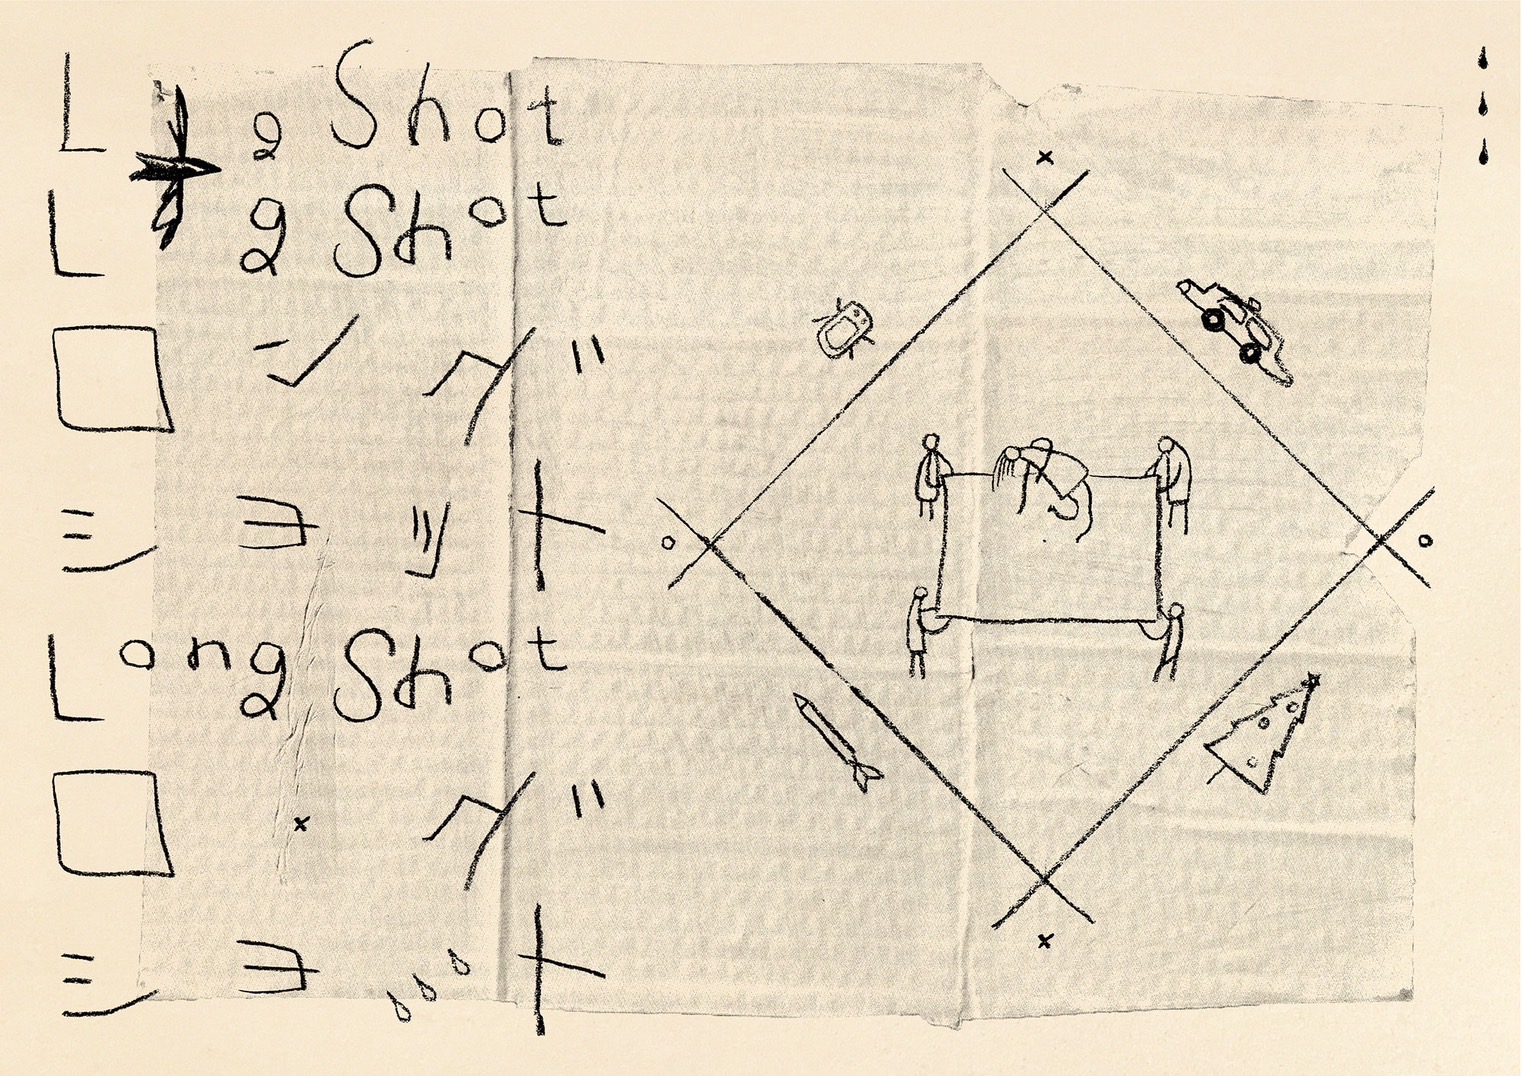 L g Shot
L g Shot
ロング
ショット
Long Shot
ロ×グ
ショ ト